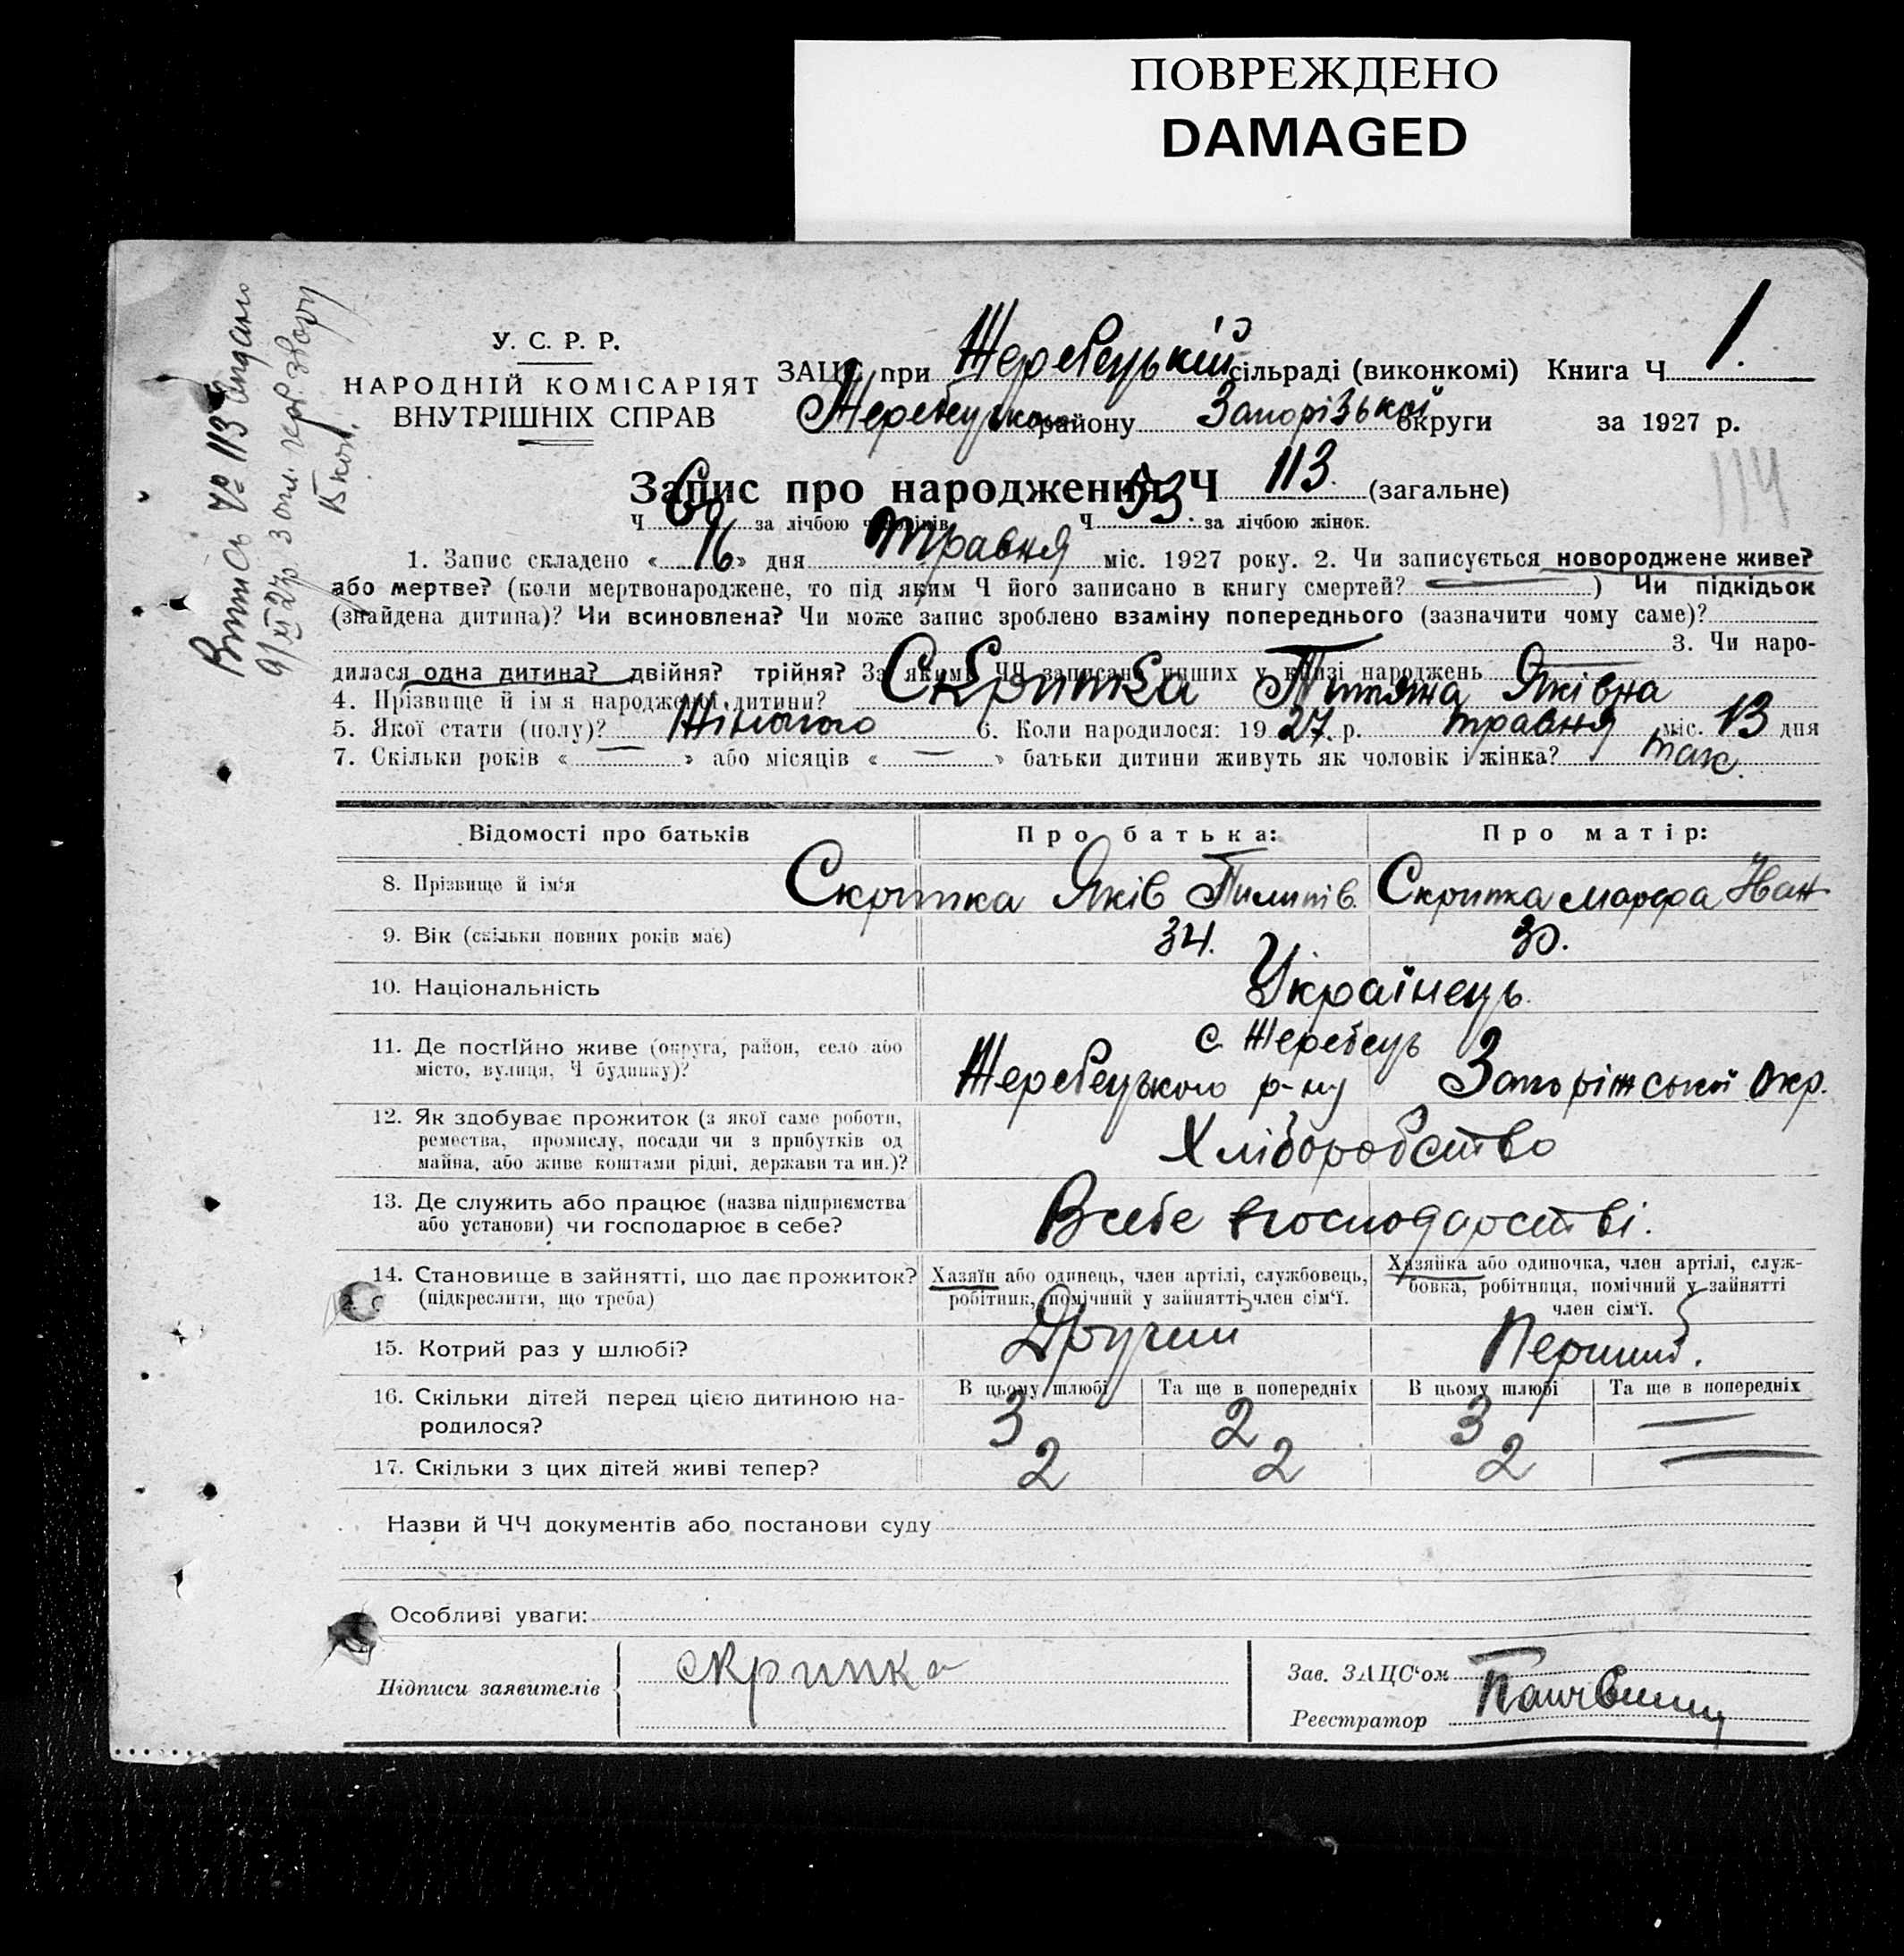 ПОВРЕЖДЕНО
DAMAGED
У. С. Р. Р.
НАРОДНІЙ КОМІСАРІЯТ
ВНУТРІШНІХ СПРАВ
ЗАЦС при Жеребецькій сільраді (виконкомі) Книга Ч 1.
Жеребецького району Запорізької округи за 1927 р.
Запис про народження Ч 113. (загальне)
114
Ч 60 за лічбою чоловіків Ч 53. за лічбою жінок.
1. Запис складено « 16 » дня травня міс. 1927 року. 2. Чи записується новороджене живе?
або мертве? (коли мертвонароджене, то під яким Ч його записано в книгу смертей? — ) Чи підкідьок
(знайдена дитина)? Чи всиновлена? Чи може запис зроблено взаміну попереднього (зазначити чому саме)?
3. Чи наро-
дилася одна дитина? двійня? трійня? За якими ЧЧ записані инших у книзі народжень —
4. Прізвище й ім'я народженої дитини? Скрипка Титяна Яківна
5. Якої стати (полу)? Жіночого 6. Коли народилося: 19 27. р. травня міс. 13 дня
7. Скільки років « — » або місяців « — » батьки дитини живуть як чоловік і жінка? так.
Відомості про батьків
Про батька:
Про матір:
8. Прізвище й ім'я Скрипка Яків Пилипів. Скрипка Марфа Іван
9. Вік (скільки повних років має) 34. 30.
10. Національність Українець.
11. Де постійно живе (округа, район, село або
місто, вулиця, Ч будинку)?
с. Жеребець
Жеребецького р-ну Запоріжської Окр.
12. Як здобуває прожиток (з якої саме роботи,
ремества, промислу, посади чи з прибутків од
майна, або живе коштами рідні, держави та ин.)?
Хліборобство
13. Де служить або працює (назва підприємства
або установи) чи господарює в себе?
В себе в господарстві.
14. Становище в зайнятті, що дає прожиток?
(підкреслити, що треба)
Хазяїн або одинець, член артілі, службовець,
робітник, помічний у зайнятті член сім'ї.
Хазяйка або одиночка, член артілі, служ-
бовка, робітниця, помічний у зайнятті
член сім'ї.
15. Котрий раз у шлюбі? Другий Перший.
16. Скільки дітей перед цією дитиною на-
родилося?
В цьому шлюбі Та ще в попередніх В цьому шлюбі Та ще в попередніх
3 2 3 —
17. Скільки з цих дітей живі тепер? 2 2 2 —
Назви й ЧЧ документів або постанови суду
Особливі уваги:
Підписи заявителів
скрипка
Зав. ЗАЦС'ом
Реєстратор